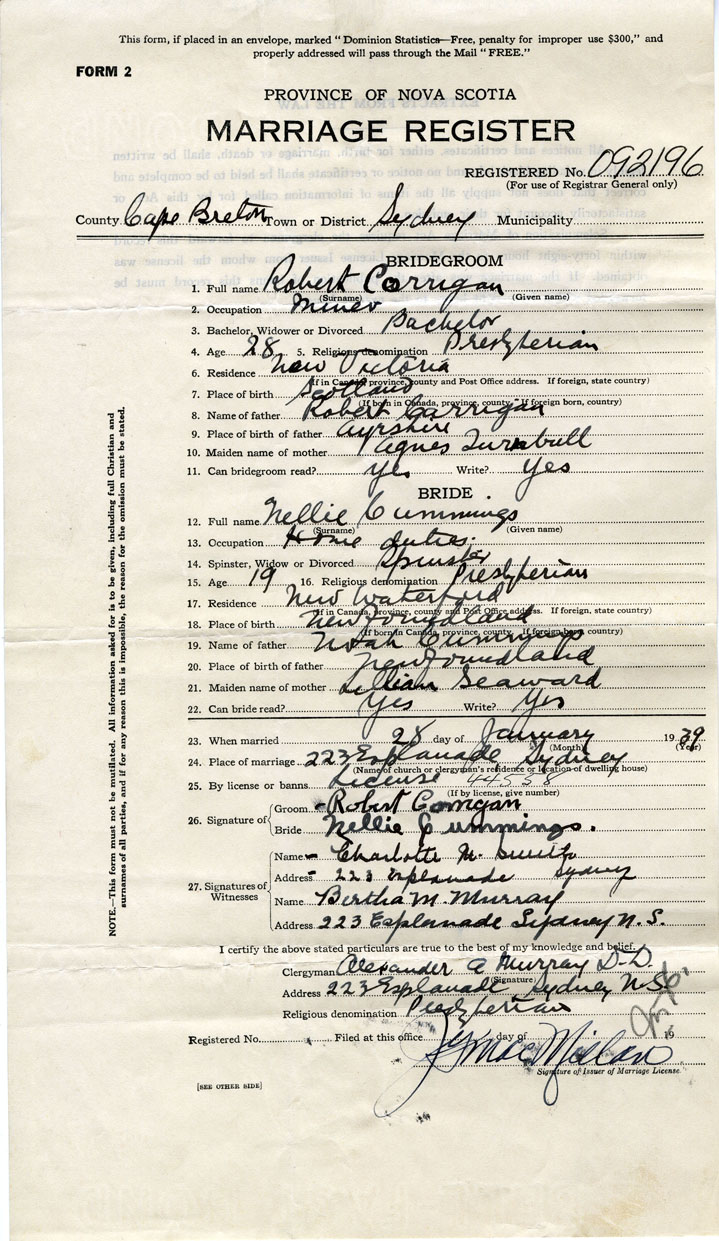 This form, if placed in an envelope, marked "Dominion Statistics—Free, penalty for improper use $300," and
properly addressed will pass through the Mail "FREE."
FORM 2
PROVINCE OF NOVA SCOTIA
MARRIAGE REGISTER
REGISTERED No. 092196
(For use of Registrar General only)
County Cape Breton Town or District Sydney Municipality
BRIDEGROOM
1. Full name Robert Corrigan
(Surname) (Given name)
2. Occupation Miner
3. Bachelor, Widower or Divorced Bachelor
4. Age 28 5. Religious denomination Presbyterian
6. Residence New Victoria
(If in Canada, province, county and Post Office address. If foreign, state country)
7. Place of birth Scotland
(If born in Canada, province, county. If foreign born, country)
8. Name of father Robert Corrigan
9. Place of birth of father Ayrshire
10. Maiden name of mother Agnes Turnbull
11. Can bridegroom read? Yes Write? Yes
BRIDE.
12. Full name Nellie Cummings
(Surname) (Given name)
13. Occupation Home duties.
14. Spinster, Widow or Divorced Spinster
15. Age 19 16. Religious denomination Presbyterian
17. Residence New Waterford
(If in Canada, province, county and Post Office address. If foreign, state country)
18. Place of birth Newfoundland
(If born in Canada, province, county. If foreign born, country)
19. Name of father Noah Cummings
20. Place of birth of father Newfoundland
21. Maiden name of mother Lillian Seaward
22. Can bride read? Yes Write? Yes
23. When married 28 day of January 1939
(Month) (Year)
24. Place of marriage 223 Esplanade Sydney
(Name of church or clergyman's residence or location of dwelling house)
25. By license or banns License 44558
(If by license, give number)
26. Signature of
Groom Robert Corrigan
Bride Nellie Cummings.
27. Signatures of Witnesses
Name Charlotte M. Smith
Address 223 Esplanade Sydney
Name Bertha M. Murray
Address 223 Esplanade Sydney N.S.
I certify the above stated particulars are true to the best of my knowledge and belief.
Clergyman Alexander A Murray D.D.
(Signature)
Address 223 Esplanade, Sydney N.S.
Religious denomination Presbyterian
Registered No. Filed at this office day of 19
MacMillan
Signature of Issuer of Marriage License.
[SEE OTHER SIDE]
NOTE.—This form must not be mutilated. All information asked for is to be given, including full Christian and
surnames of all parties, and if for any reason this is impossible, the reason for the omission must be stated.